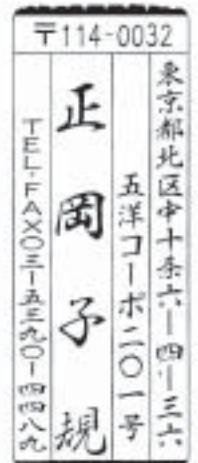 〒114-0032
東京都北区中十条六ー四ー三六
五洋コーポ二〇一号
正岡子規
TEL・FAX〇三ー五三九〇ー四四八九